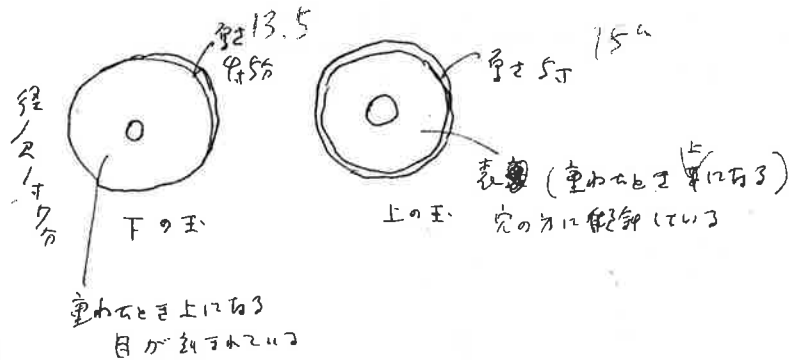 厚さ 13.5
4寸5分
径1尺1寸7分
下の玉
重ねたとき上になる
目が刻まれている
厚さ5寸 15cm
上の玉
表 (重ねたとき上になる)
穴の方に傾斜している